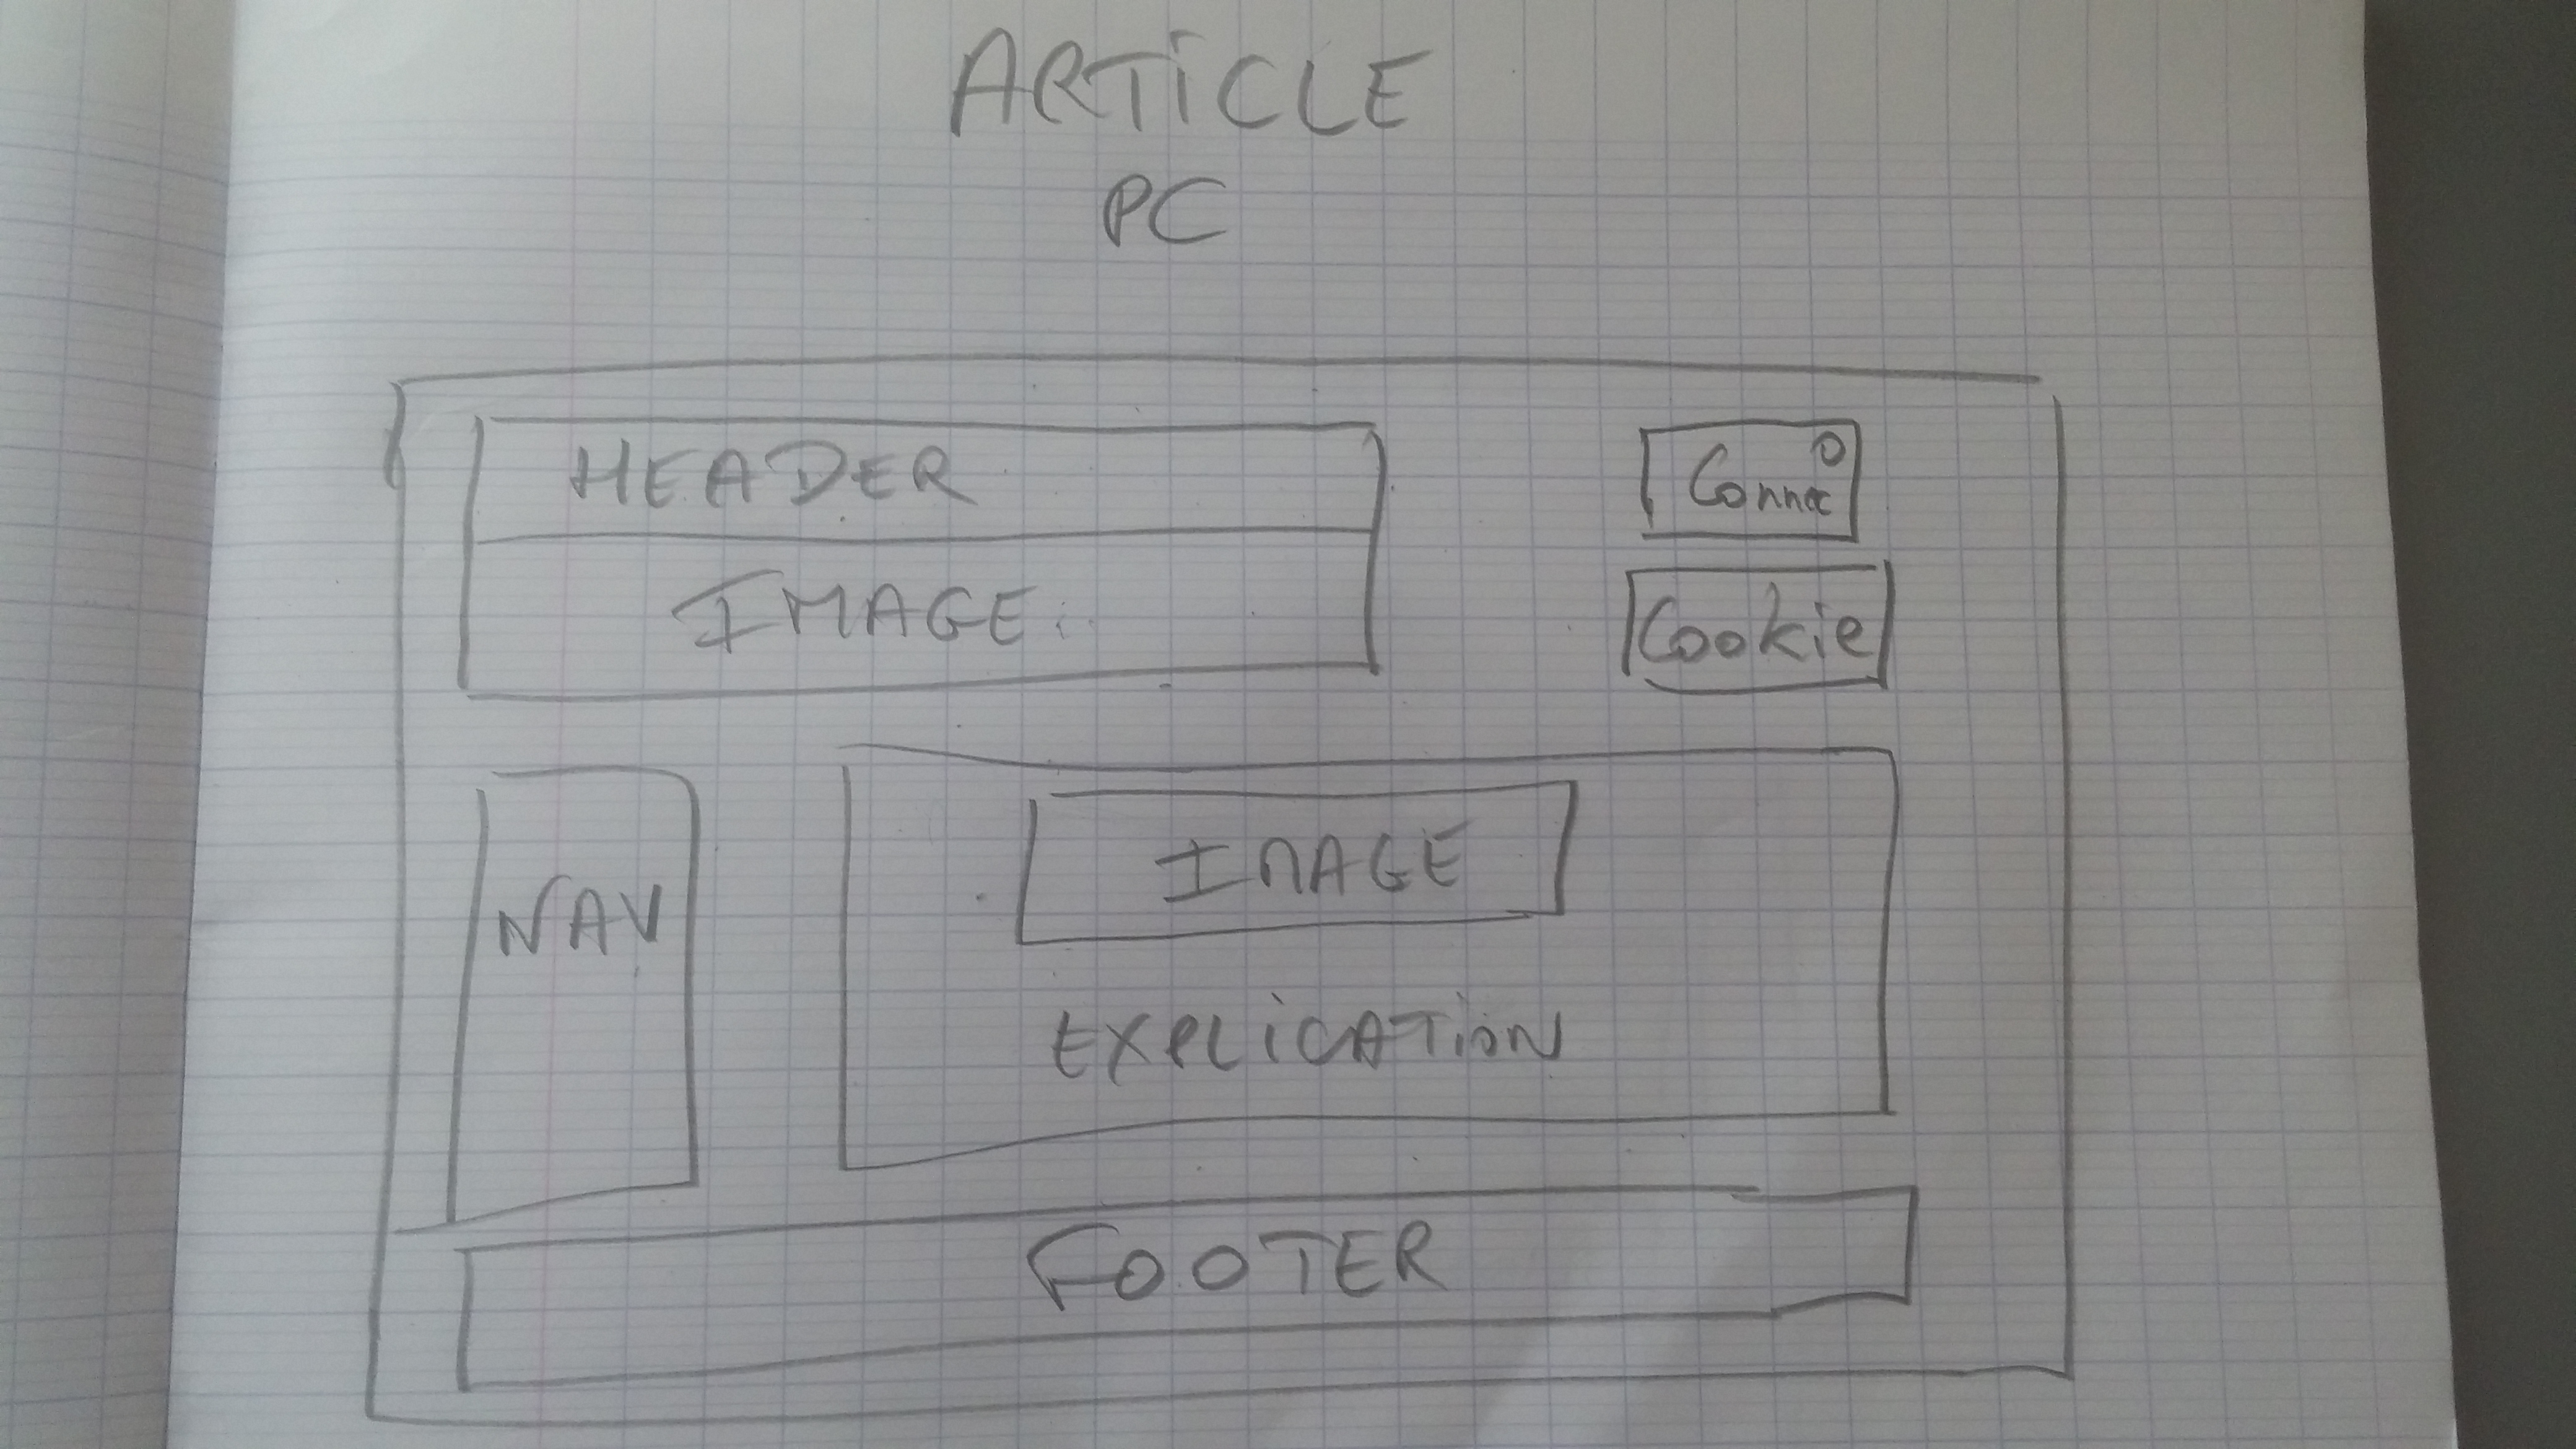 ARTiCLE
PC
HEADER
IMAGE
Connec
Cookie
NAV
IMAGE
EXPLiCATiON
FOOTER